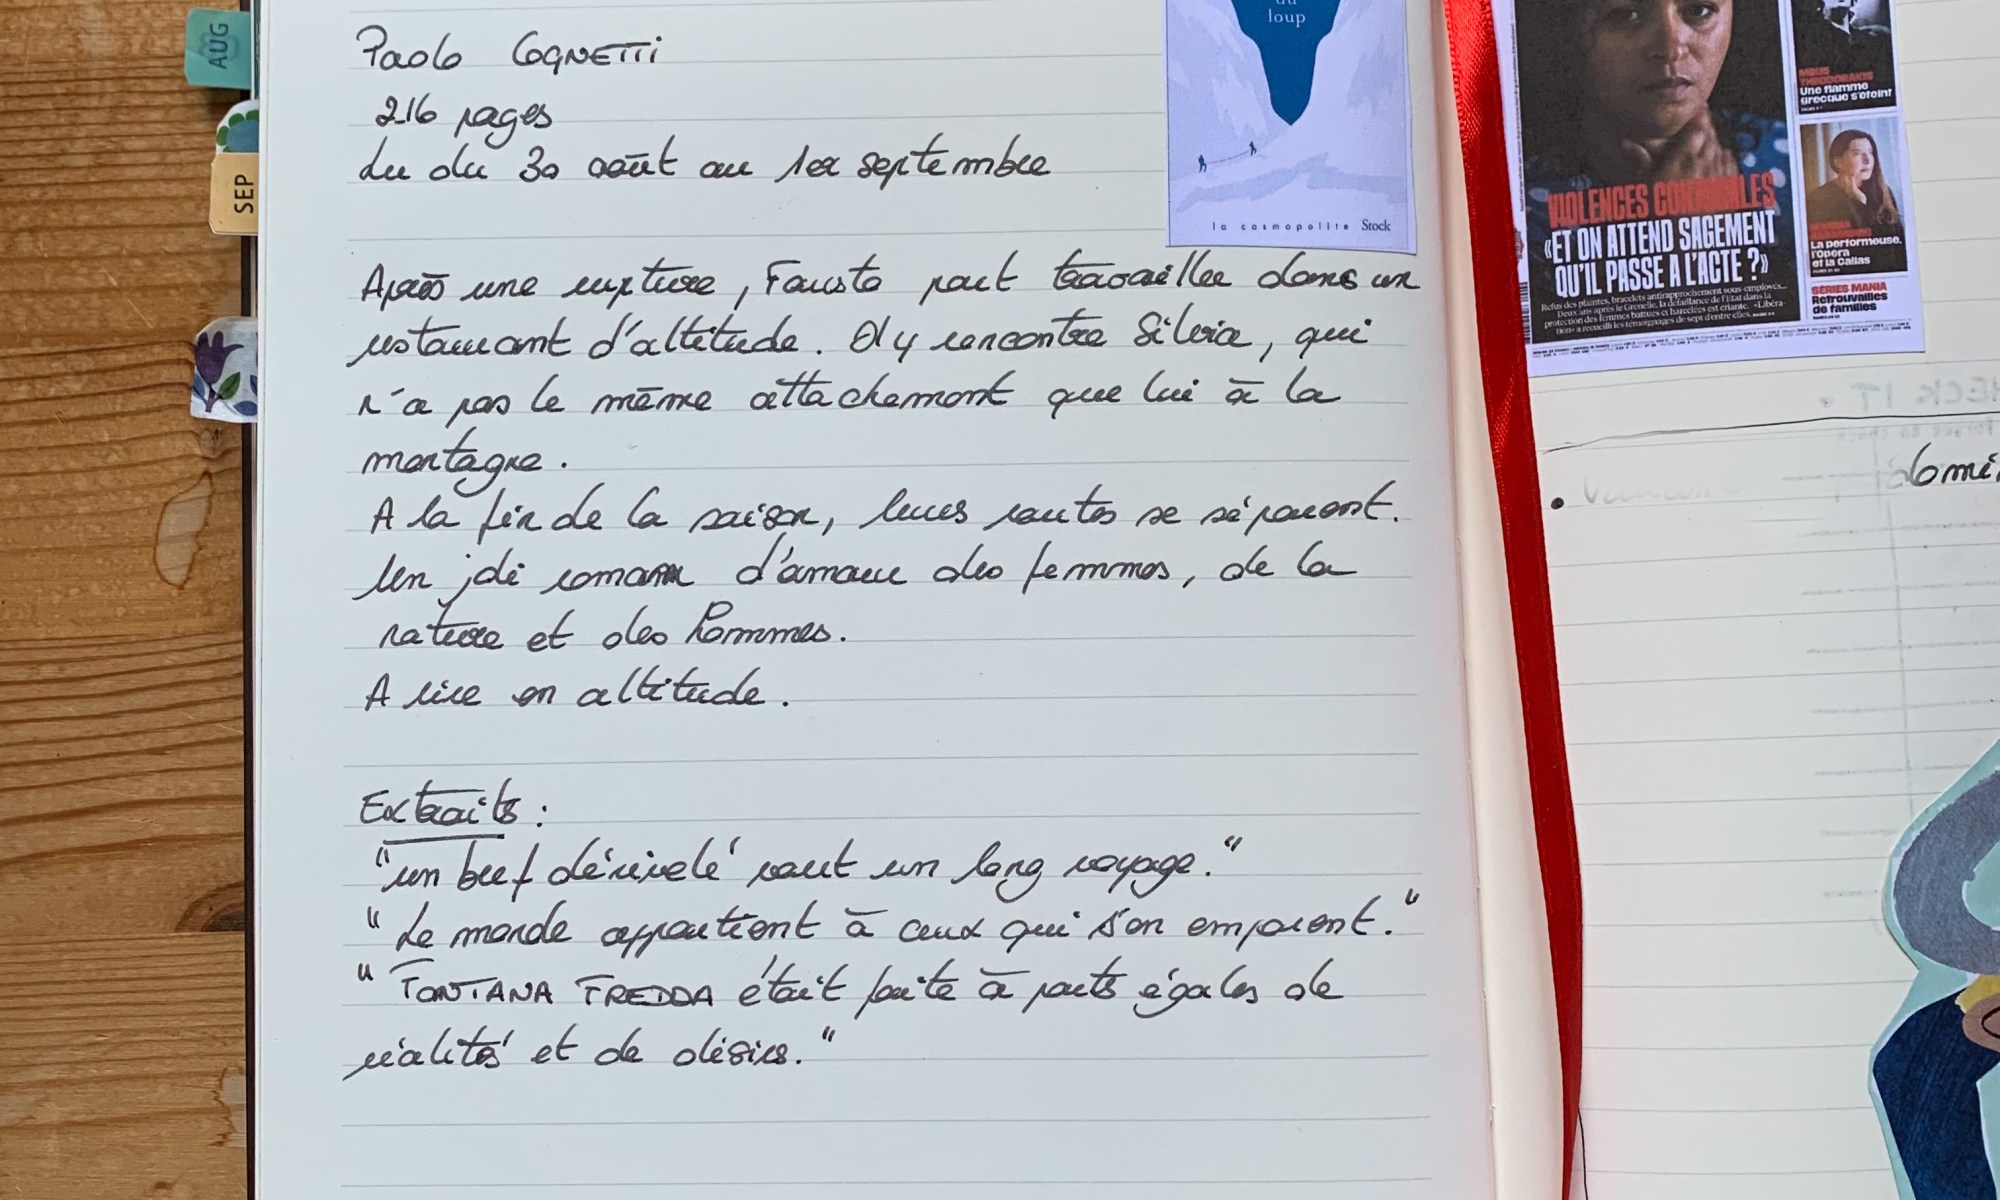 AUG
SEP
Paolo COGNETTI
216 pages
Lu du 30 août au 1er septembre
Après une rupture, Fausto part travailler dans un
restaurant d'altitude. Il y rencontre Silvia, qui
n'a pas le même attachement que lui à la
montagne.
A la fin de la saison, leurs routes se séparent.
Un joli roman d'amour des femmes, de la
nature et des hommes.
A lire en altitude.
Extraits :
"un bref dénivelé vaut un long voyage."
"Le monde appartient à ceux qui s'en emparent."
"FONTANA FREDDA était faite à parts égales de
réalités et de désirs."
du
loup
la cosmopolite Stock
VIOLENCES CONJUGALES
«ET ON ATTEND SAGEMENT
QU'IL PASSE A L'ACTE ?»
Refus des plaintes, bracelets antirapprochement sous-employés...
Deux ans après le Grenelle, la défaillance de l'Etat dans la
protection des femmes battues et harcelées est criante. «Libéra-
tion» a recueilli les témoignages de sept d'entre elles.
MIKIS
THEODORAKIS
Une flamme
grecque s'éteint
La performeuse,
l'opéra
et la Callas
SÉRIES MANIA
Retrouvailles
de familles